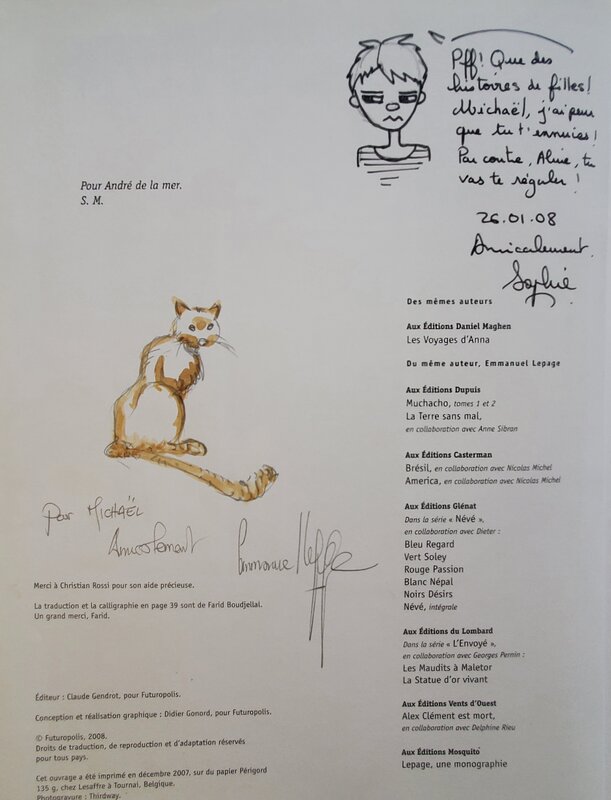 Pff! Que des
histoires de filles!
Michaël, j'ai peur
que tu t'ennuies!
Par contre, Aline, tu
vas te régaler!
26.01.08
Amicalement.
Sophie
Pour André de la mer.
S. M.
Pour MICHAËL
Amicalement
Emmanuel Lepage
Merci à Christian Rossi pour son aide précieuse.
La traduction et la calligraphie en page 39 sont de Farid Boudjellal.
Un grand merci, Farid.
Éditeur : Claude Gendrot, pour Futuropolis.
Conception et réalisation graphique : Didier Gonord, pour Futuropolis.
© Futuropolis, 2008.
Droits de traduction, de reproduction et d'adaptation réservés
pour tous pays.
Cet ouvrage a été imprimé en décembre 2007, sur du papier Périgord
135 g, chez Lesaffre à Tournai, Belgique.
Photogravure : Thirdway.
Des mêmes auteurs
Aux Éditions Daniel Maghen
Les Voyages d'Anna
Du même auteur, Emmanuel Lepage
Aux Éditions Dupuis
Muchacho, tomes 1 et 2
La Terre sans mal,
en collaboration avec Anne Sibran
Aux Éditions Casterman
Brésil, en collaboration avec Nicolas Michel
America, en collaboration avec Nicolas Michel
Aux Éditions Glénat
Dans la série « Névé »,
en collaboration avec Dieter :
Bleu Regard
Vert Soley
Rouge Passion
Blanc Népal
Noirs Désirs
Névé, intégrale
Aux Éditions du Lombard
Dans la série « L'Envoyé »,
en collaboration avec Georges Pernin :
Les Maudits à Maletor
La Statue d'or vivant
Aux Éditions Vents d'Ouest
Alex Clément est mort,
en collaboration avec Delphine Rieu
Aux Éditions Mosquito
Lepage, une monographie